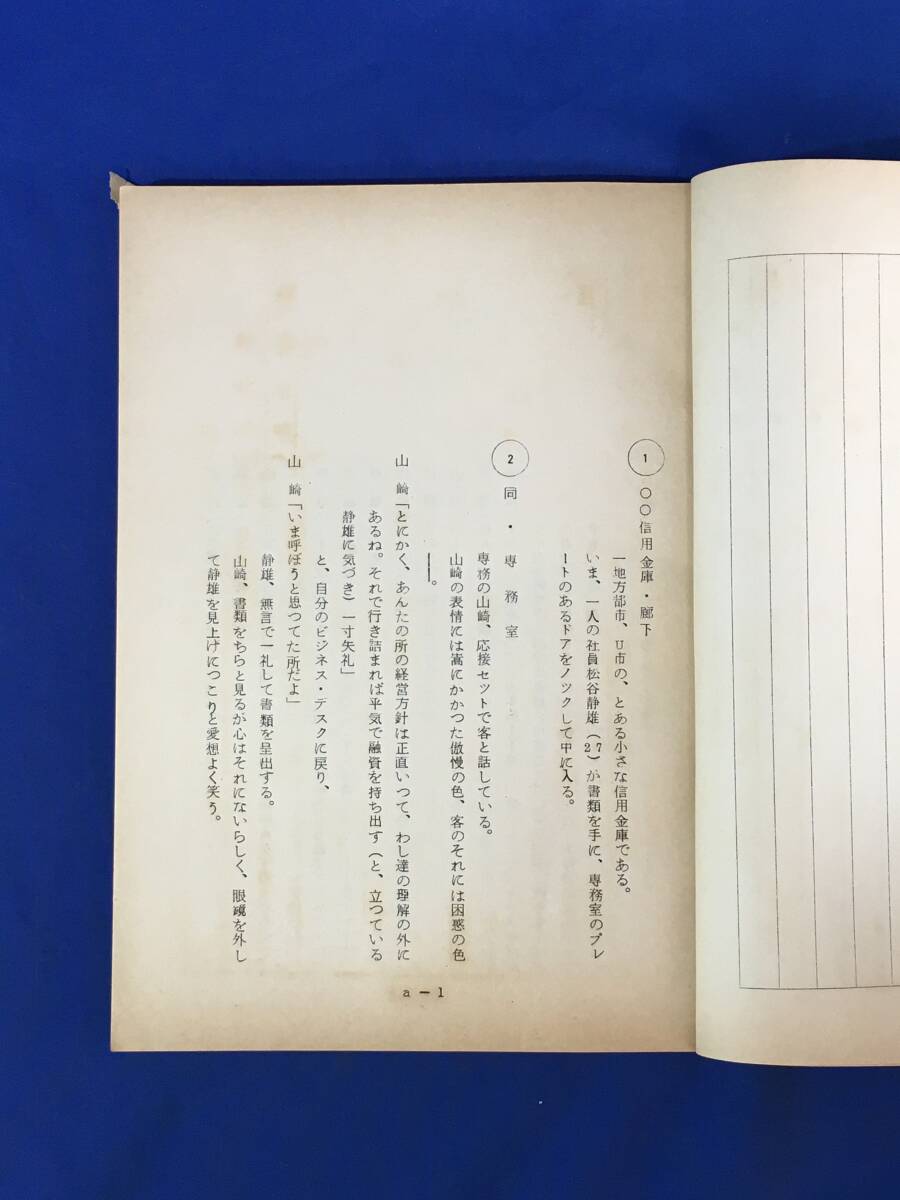 ① 〇〇信用金庫・廊下
一地方都市、U市の、とある小さな信用金庫である。
いま、一人の社員松谷静雄(27)が書類を手に、専務室のプレ
ートのあるドアをノックして中に入る。
② 同・専務室
専務の山崎、応接セットで客と話している。
山崎の表情には嵩にかかつた傲慢の色、客のそれには困惑の色
――。
山崎「とにかく、あんたの所の経営方針は正直いつて、わし達の理解の外に
あるね。それで行き詰まれば平気で融資を持ち出す(と、立つている
静雄に気づき)一寸失礼」
と、自分のビジネス・デスクに戻り、
山崎「いま呼ぼうと思つてた所だよ」
静雄、無言で一礼して書類を呈出する。
山崎、書類をちらと見るが心はそれにないらしく、眼鏡を外し
て静雄を見上げにつこりと愛想よく笑う。
a－1